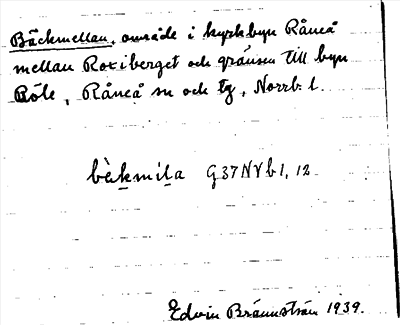 Bäckmellan, område i kyrkbyn Råneå
mellan Roxiberget och gränsen till byn
Böle, Råneå sn och tg, Norrb. l.
G37NVb1, 12
Edvin Brännström 1939.